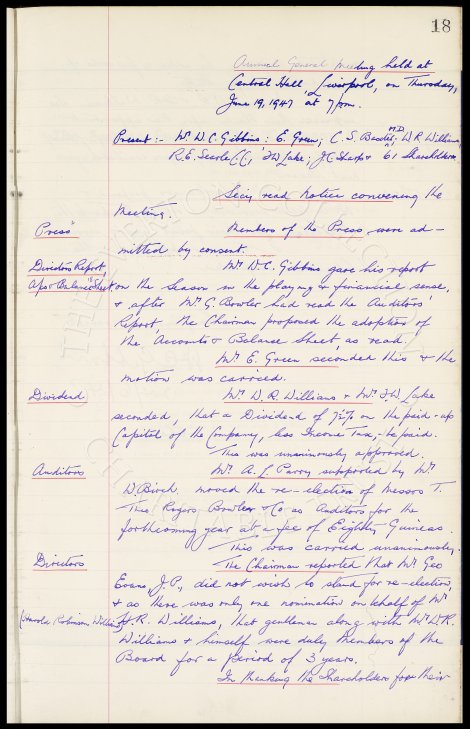 18
Annual General Meeting held at
Central Hall, Liverpool, on Thursday,
June 19, 1947 at 7 p.m.
Present :- Mr W.C. Gibbins : E Green; C. S. M.D.; W R Williams
R. E. Searle ; J W Lake; J C Sharp + 61 Shareholders
Secy read Notice convening the
Meeting.
Press
Members of the Press were ad-
mitted by consent.
Directors Report,
Mr W.C. Gibbins gave his report
A/cs & Balance Sheet
on the Season in the playing & financial sense,
& after Mr G. Bowler had read the Auditors'
Report, the Chairman proposed the adoption of
the Accounts & Balance Sheet, as read.
Mr E. Green seconded this & the
motion was carried.
Dividend
Mr W. R. Williams & Mr J W Lake
seconded, that a Dividend of 7½% on the paid-up
Capital of the Company, less Income Tax, be paid.
This was unanimously approved.
Auditors
Mr A. L Parry supported by Mr
W Birch moved the re-election of Messrs T.
Theo: Rogers Bowler & Co as Auditors for the
forthcoming year at a fee of Eighty Guineas.
This was carried unanimously.
Directors
The Chairman reported that Mr Geo
Evans, J.P., did not wish to stand for re-election,
& as there was only one nomination on behalf of Mr
(Harold Robinson Williams)
H R. Williams, that gentleman along with Mr W.R.
Williams & himself were duly members of the
Board for a period of 3 years.
In thanking the Shareholders for their